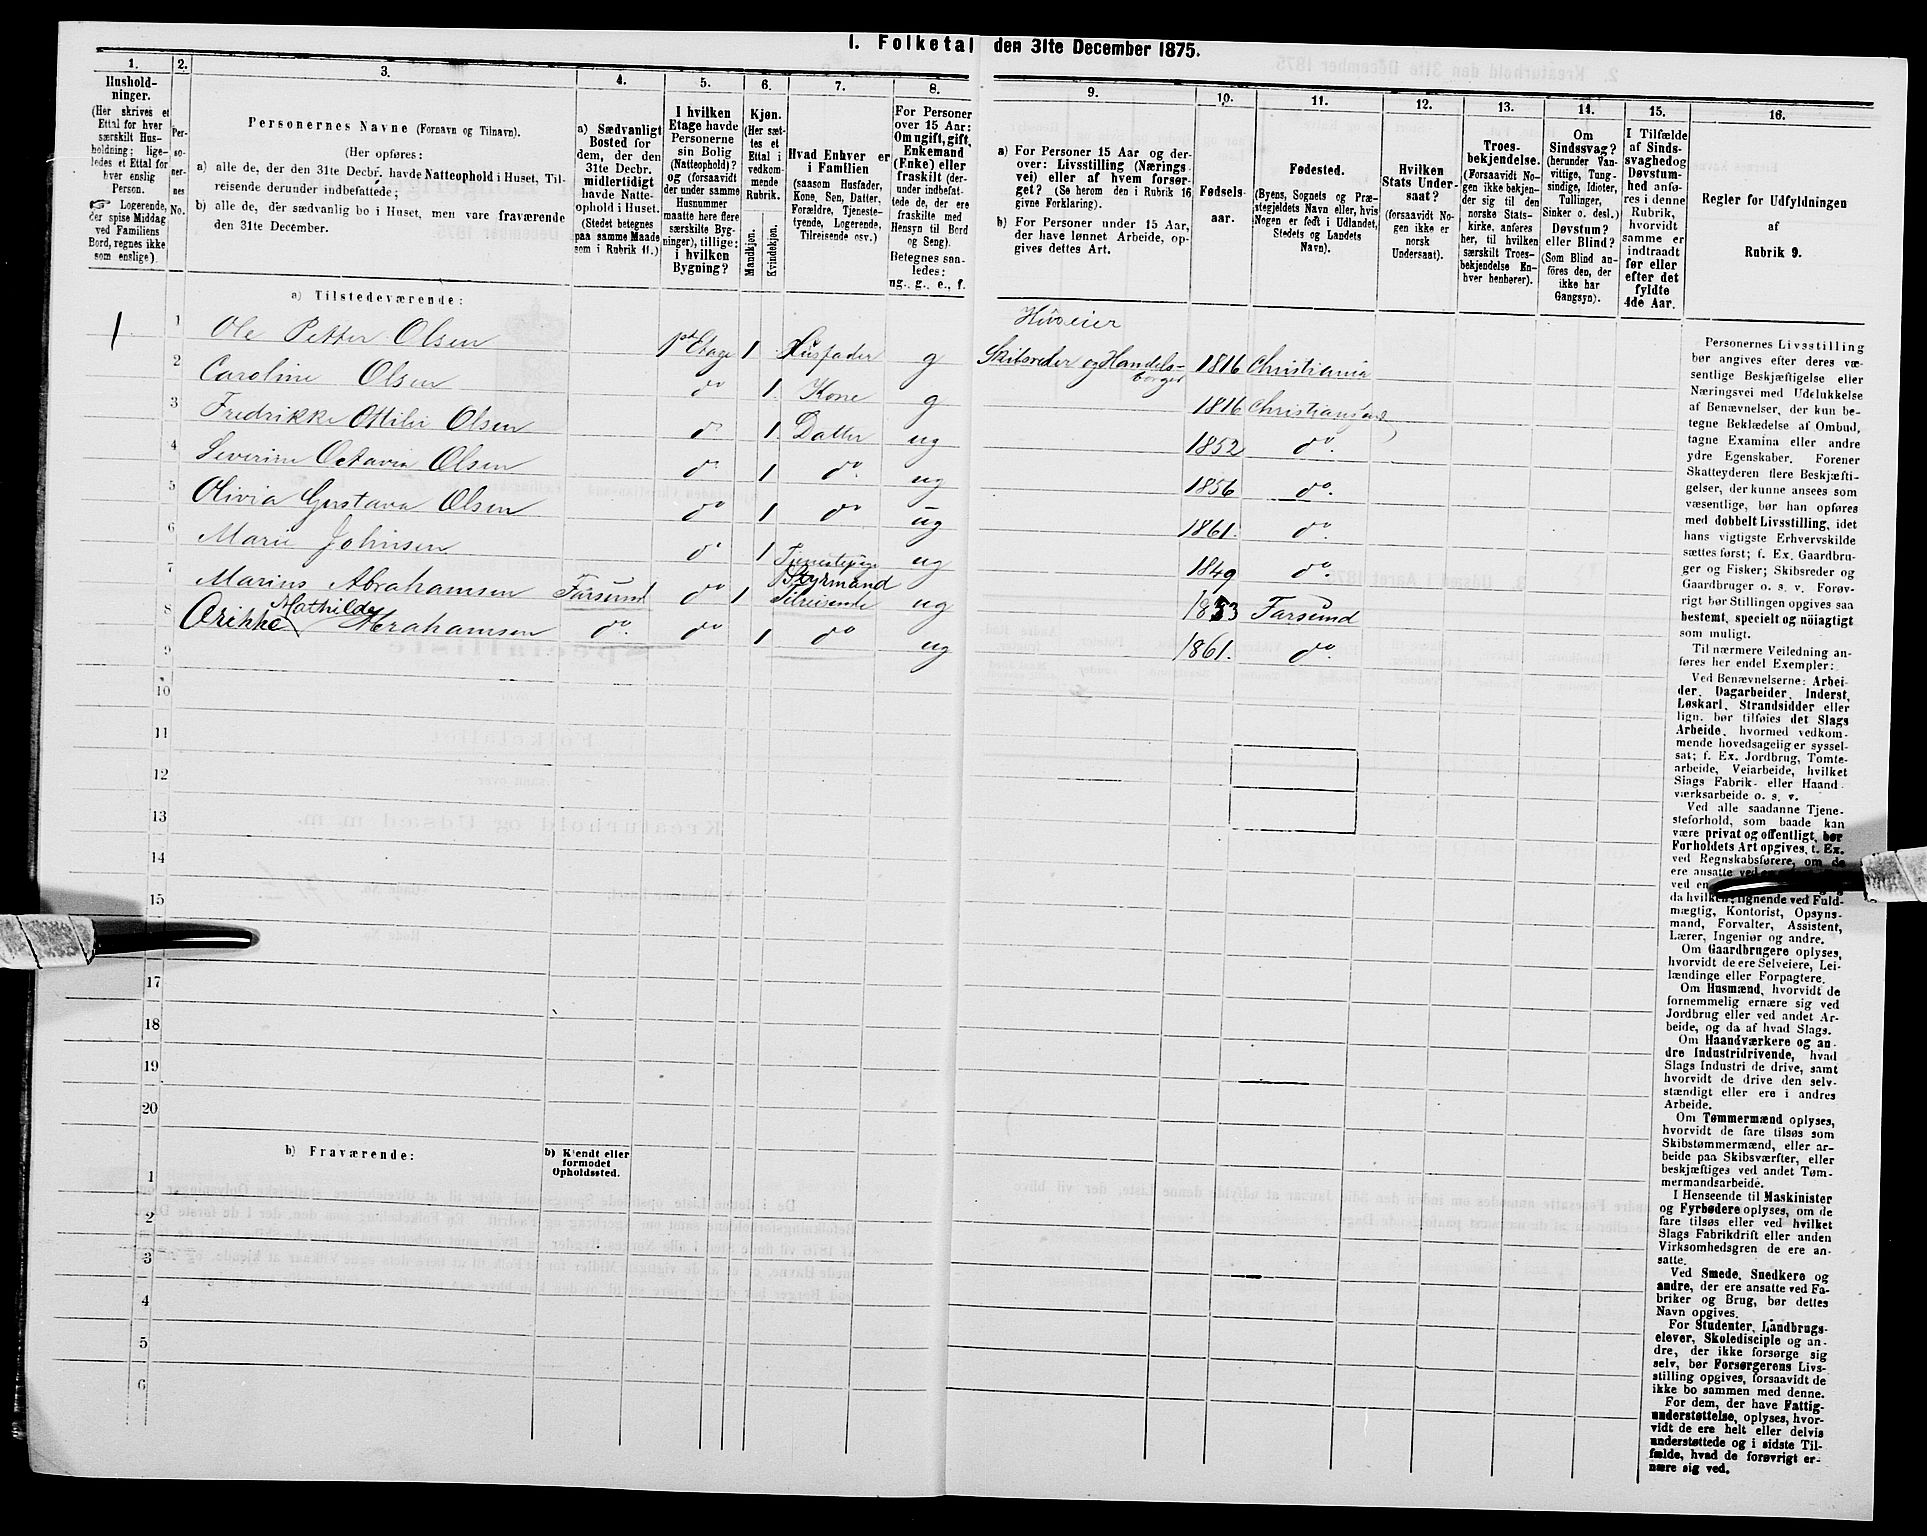 1. Folketal den 31te December 1875.
1.
Hushold-
ninger.
(Her skrives et
Ettal for hver
særskilt Hus-
holdning; lige-
ledes et Ettal for
hver enslig
Person.
Logerende,
der spise Middag
ved Familiens
Bord, regnes ikke
som enslige).
2.
Per-
so-
ner-
nes
No.
3.
Personernes Navne (Fornavn og Tilnavn).
(Her opføres:
a) alle de, der den 31te Decbr. havde Natteophold i Huset, Til-
reisende derunder indbefattede;
b) alle de, der sædvanlig bo i Huset, men vare fraværende
den 31te December.
4.
a) Sædvanligt
Bosted for
dem, der den
31te Decbr.
midlertidigt
havde Natte-
ophold i Huset.
(Stedet betegnes
paa samme Maade
som i Rubrik 11.)
5.
I hvilken
Etage havde
Personerne
sin Bolig
(Natteophold)?
og (forsaavidt
der under samme
Husnummer
maatte høre flere
særskilte Byg-
ninger), tillige:
i hvilken
Bygning?
6.
Kjøn.
(Her sæt-
tes et
Ettal i
vedkom-
mende
Rubrik.
Mandkjøn.
Kvindekjøn.
7.
Hvad Enhver er
i Familien
(saasom Husfader,
Kone, Søn, Datter,
Forældre, Tjeneste-
tyende, Logerende,
Tilreisende osv.)
8.
For Personer
over 15 Aar:
Om ugift, gift,
Enkemand
(Enke) eller
fraskilt (der-
under indbefat-
tede de, der ere
fraskilte med
Hensyn til Bord
og Seng).
Betegnes saa-
ledes:
ug., g., e., f.
9.
a) For Personer 15 Aar og der-
over: Livsstilling (Nærings
vei) eller af hvem forsør-
get? (Se herom den i Rubrik 16
givne Forklaring).
b) For Personer under 15 Aar,
der have lønnet Arbeide, op-
gives dettes Art.
10.
Fødsels-
aar.
11.
Fødested.
(Byens, Sognets og Præ-
stegjeldets Navn eller, hvis
Nogen er født i Udlandet,
Stedets og Landets
Navn).
12.
Hvilken
Stats Under-
saat?
(forsaavidt No-
gen ikke er
norsk
Undersaat).
13.
Troes-
bekjendelse.
(Forsaavidt No-
gen ikke bekjen-
der sig til den
norske Stats-
kirke, anføres
her, til hvilken
særskilt Troes-
bekjendelse En-
hver henhører).
14.
Om
Sindssvag?
(herunder Van-
vittige, Tung-
sindige, Idioter,
Tullinger,
Sinker o. desl.)
Døvstum?
eller Blind?
(Som Blind an-
føres den, der
ikke har
Gangsyn).
15.
I Tilfælde
af Sinds-
svaghed og
Døvstum-
hed anfø-
res i denne
Rubrik,
hvorvidt
samme er
indtraadt
før eller
efter det
fyldte
4de Aar.
16.
Regler for Udfyldningen
af
Rubrik 9.
a) Tilstedeværende:
1 1 Ole Petter Olsen 1ste Etage 1 Husfader g Huseier
Skibsreder og Handels-
borger 1816 Christiania
2 Caroline Olsen do 1. Kone g 1816 Christianssand
3 Fredrikke Ottilie Olsen do 1. Datter ug 1852 do.
4 Severine Octavia Olsen do 1 do. ug 1856 do.
5 Olivia Gustava Olsen do 1 do ug 1861. do.
6 Marie Johnsen do 1 Tjenestepige ug 1849 do.
7 Marius Abrahamsen Farsund do 1 Styrmand
Tilreisende ug 1853 Farsund
8 Mathilde Abrahamsen do. do 1 do ug 1861. do.
9
10
11
12
13
14
15
17
18
19
20
b) Fraværende:
b) Kjendt eller
formodet
Opholdssted.
1
2
3
4
5
6
Personernes Livsstilling
bør angives efter deres væ-
sentlige Beskjæftigelse eller
Næringsvei med Udelukkelse
af Benævnelser, der kun be-
tegne Beklædelse af Ombud,
tagne Examina eller andre
ydre Egenskaber. Forener
Skatteyderen flere Beskjæfti-
gelser, der kunne ansees som
væsentlige, bør han opføres
med dobbelt Livsstilling, idet
hans vigtigste Erhvervskilde
sættes først; f. Ex. Gaardbru-
ger og Fisker; Skibsreder og
Gaardbruger o. s. v. Forøv-
rigt bør Stillingen opgives saa
bestemt, specielt og nöiagtigt
som muligt.
Til nærmere Veiledning an-
føres her endel Exempler:
Ved Benævnelserne: Arbei-
der, Dagarbeider, Inderst,
Løskarl, Strandsidder eller
lign. bør tilføies det Slags
Arbeide, hvormed vedkom-
mende hovedsagelig er syssel-
sat; f. Ex. Jordbrug, Tomte-
arbeide, Veiarbeide, hvilket
Slags Fabrik- eller Haand
værksarbeide o. s. v.
Ved alle saadanne Tjene-
steforhold, som baade kan
være privat og offentligt, bør
Forholdets Art opgives, f. Ex.
ved Regnskabsførere, om de
ere ansatte ved
ved en
da hvilken; lignende ved Fuld-
mægtig, Kontorist, Opsyns-
mand, Forvalter, Assistent,
Lærer, Ingeniør og andre.
Om Gaardbrugere oplyses,
hvorvidt de ere Selveiere, Lei-
lændinge eller Forpagtere.
Om Husmænd, hvorvidt de
fornemmelig ernære sig ved
Jordbrug eller ved andet Ar-
beide, og da af hvad Slags.
Om Haandværkere og an-
dre Industridrivende, hvad
Slags Industri de drive, samt
hvorvidt de drive den selv-
stændigt eller ere i andres
Arbeide.
Om Tømmermænd oplyses,
hvorvidt de fare tilsøs som
Skibstømmermænd, eller ar-
beide paa Skibsværfter, eller
beskjæftiges ved andet Tøm-
mermandsarbeide.
I Henseende til Maskinister
og Fyrbødere oplyses, om de
fare tilsøs eller ved hvilket
Slags Fabrikdrift eller anden
Virksomhedsgren de ere an-
satte.
Ved Smede, Snedkere og
andre, der ere ansatte ved Fa-
briker og Brug, bør dettes
Navn opgives.
For Studenter, Landbrugs-
elever, Skoledisciple og an-
dre, der ikke forsørge sig
selv, bør Forsørgerens Livs-
stilling opgives, forsaavidt de
ikke bo sammen med denne.
For dem, der have Fattig-
understøttelse, oplyses, hvor-
vidt de ere helt eller delvis
understøttede og i sidste Til-
fælde, hvad de forøvrigt er-
nære sig ved.